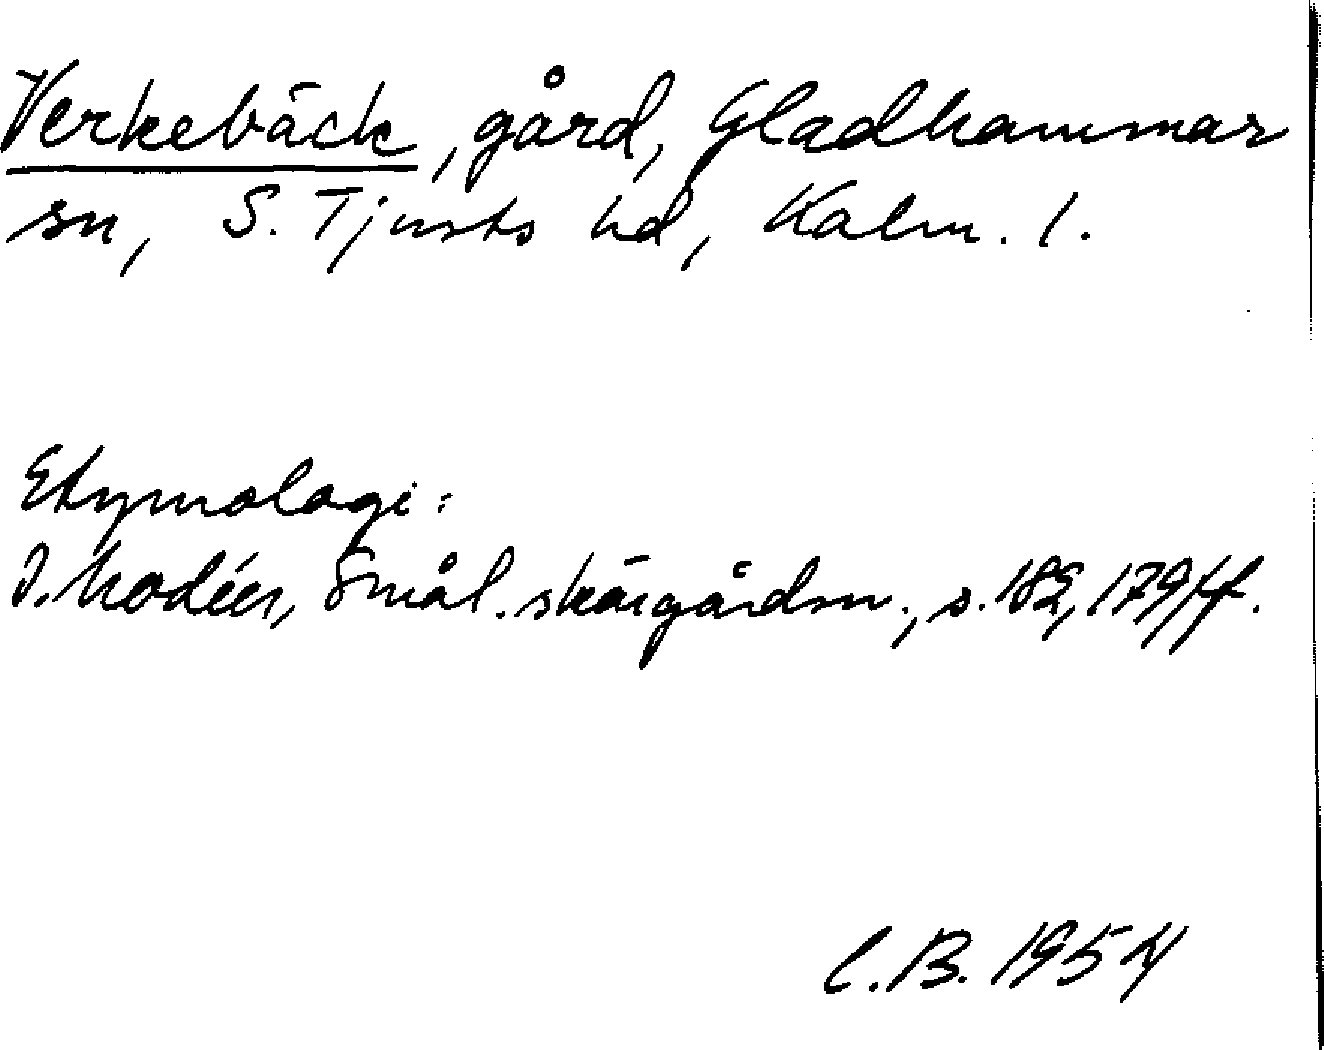 Verkebäck, gård, Gladhammar
sn, S. Tjusts hd, Kalm. l.
Etymologi:
I. Modéer, Smål. skärgårdsn., s. 182, 179ff.
C.B. 1954